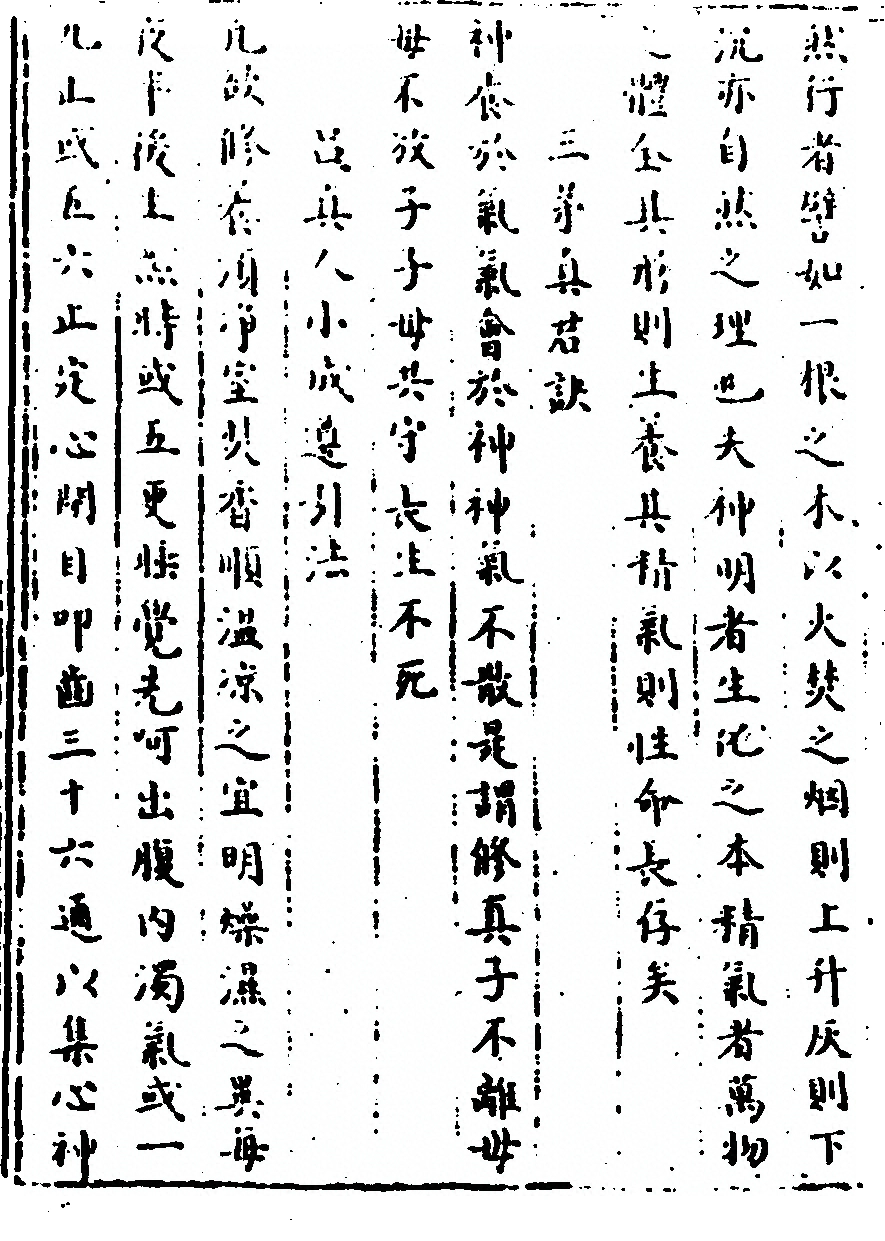 然行者譬如一根之木以火焚之烟則上升灰則下
沉亦自然之理也夫神明者生化之本精氣者萬物
之體全其形則生養其精氣則性命長存矣
三茅真君訣
神養於氣氣會於神神氣不散是謂修真子不離母
母不放子子母共守長生不死
呂真人小成導引法
凡欲修養須淨室焚香順温凉之宜明燥濕之異每
夜半後生氣時或五更睡覺先呵出腹內濁氣或一
九止或五六止定心閉目叩齒三十六通以集心神